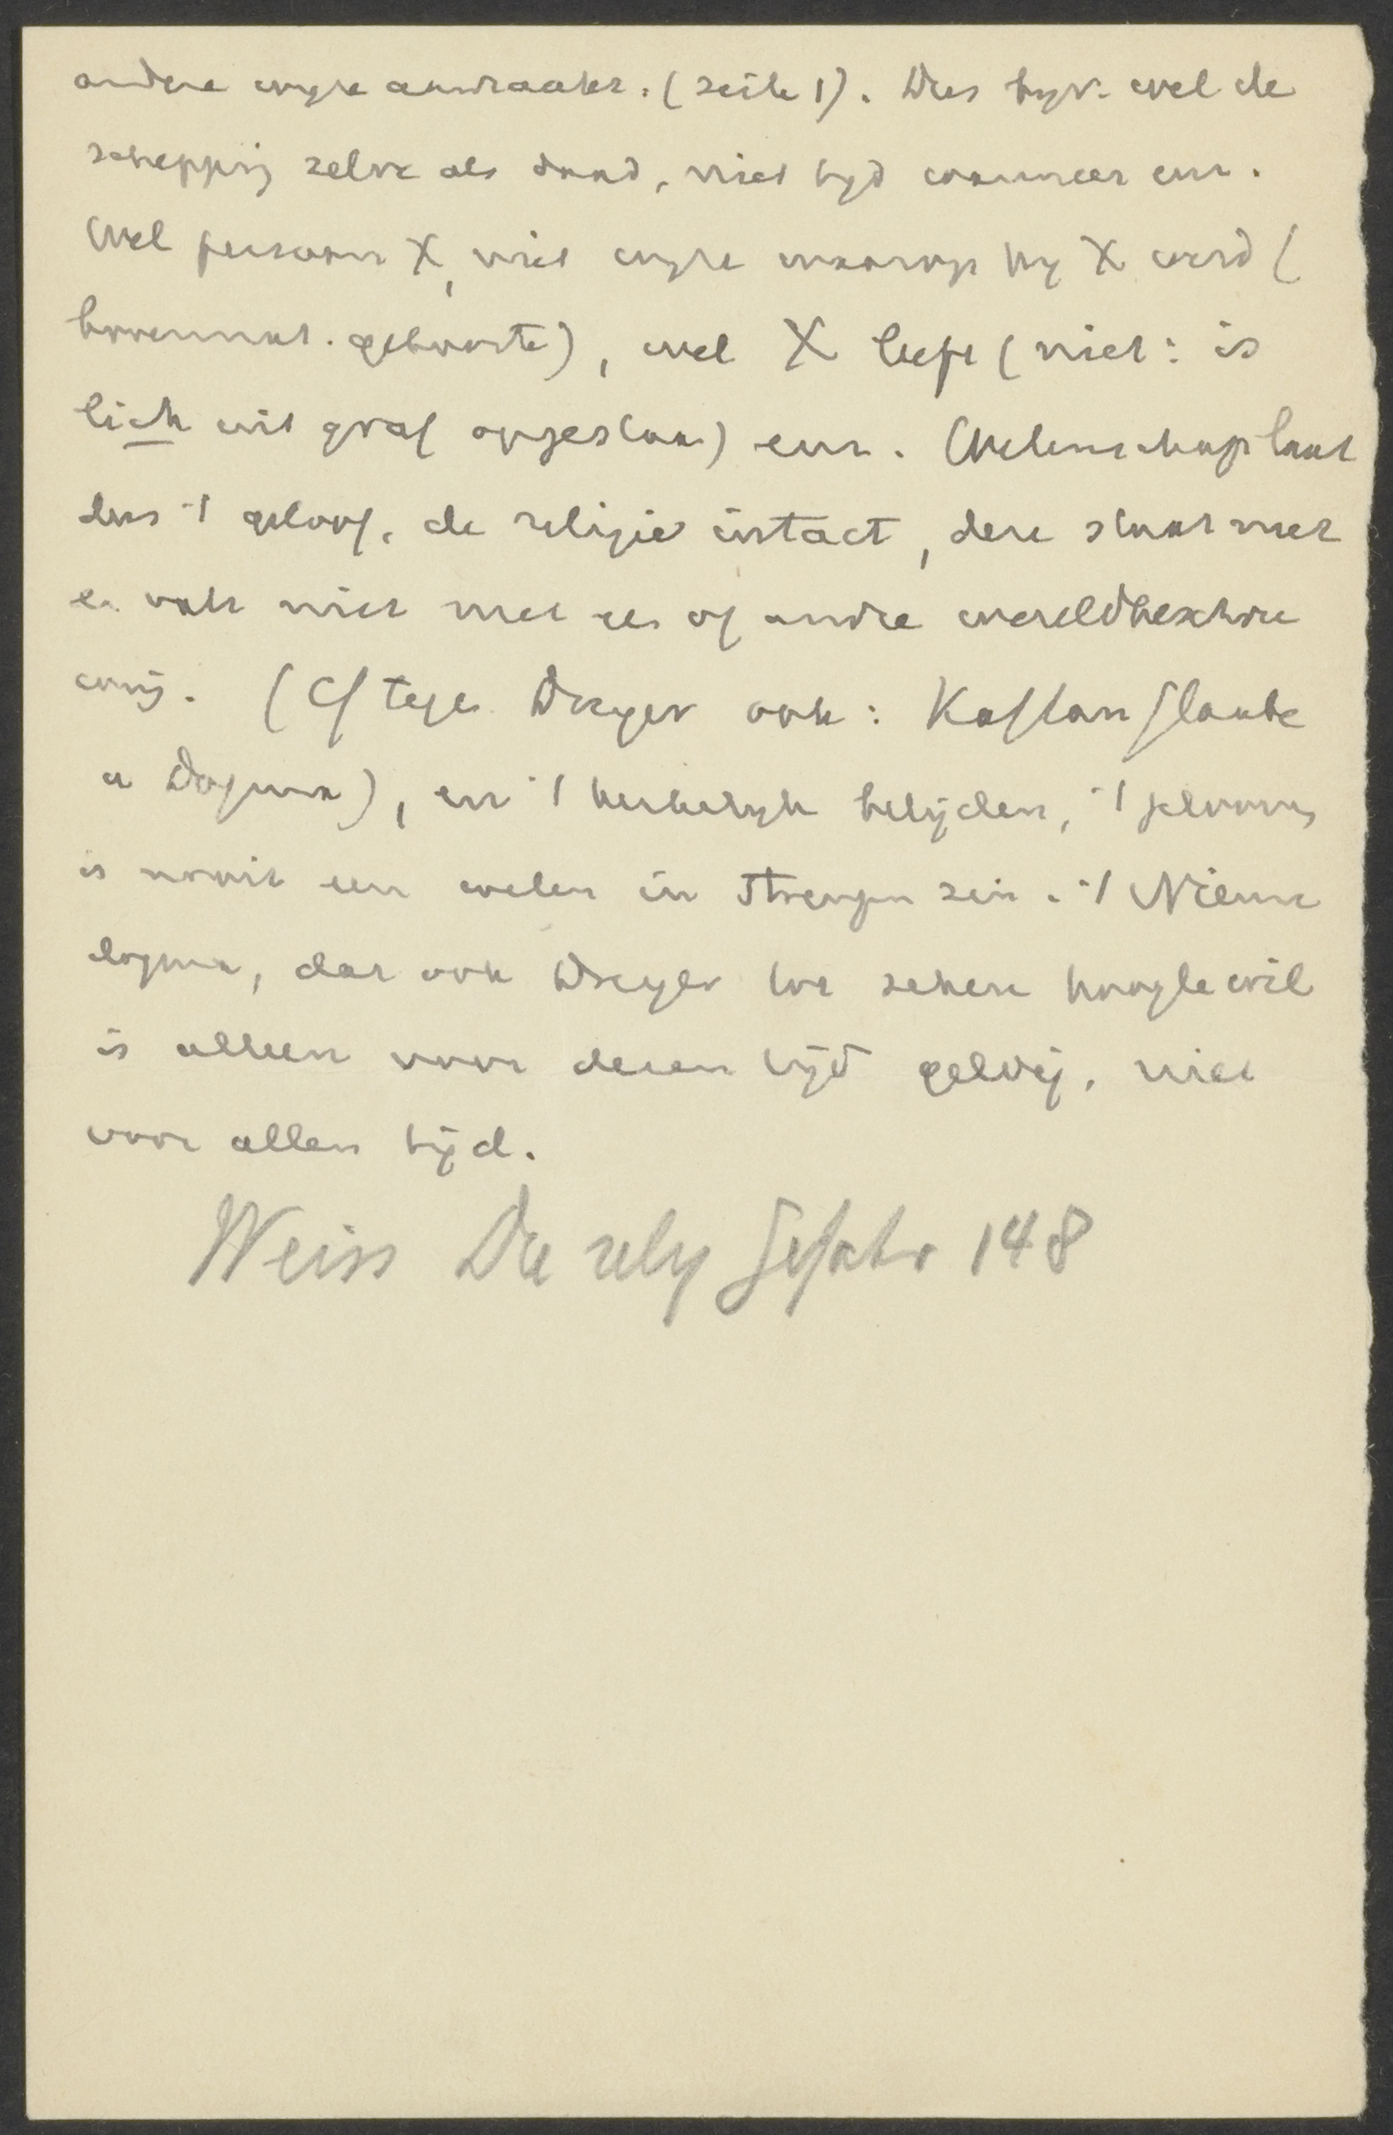 andere wyze aanraakt. (zeite 1). Dus byv. wel de
schepping zelve als daad, niet tyd wanneer enz.
Wel persoon X, niet wyze waarop hy X werd (
bovennat. geboorte), wel X leeft (niet: is
lich uit graf opgestaan) enz. Wetenschap laat
dus 't geloof, de religie intact, deze staat met
en valt niet met een of andre wereldbeschou
wing. (Cf tegen Dreyer ook: Kaftan Glaube
u Dogma), en 't kerkelyk belijden, 't geloof
is nooit een weten in strengen zin. 't Nieuwe
dogma, dat ook Dreyer tot zekere hoogte wil
is alleen voor dezen tijd geldig, niet
voor allen tijd.
Weiss Die relig Gefahr 148